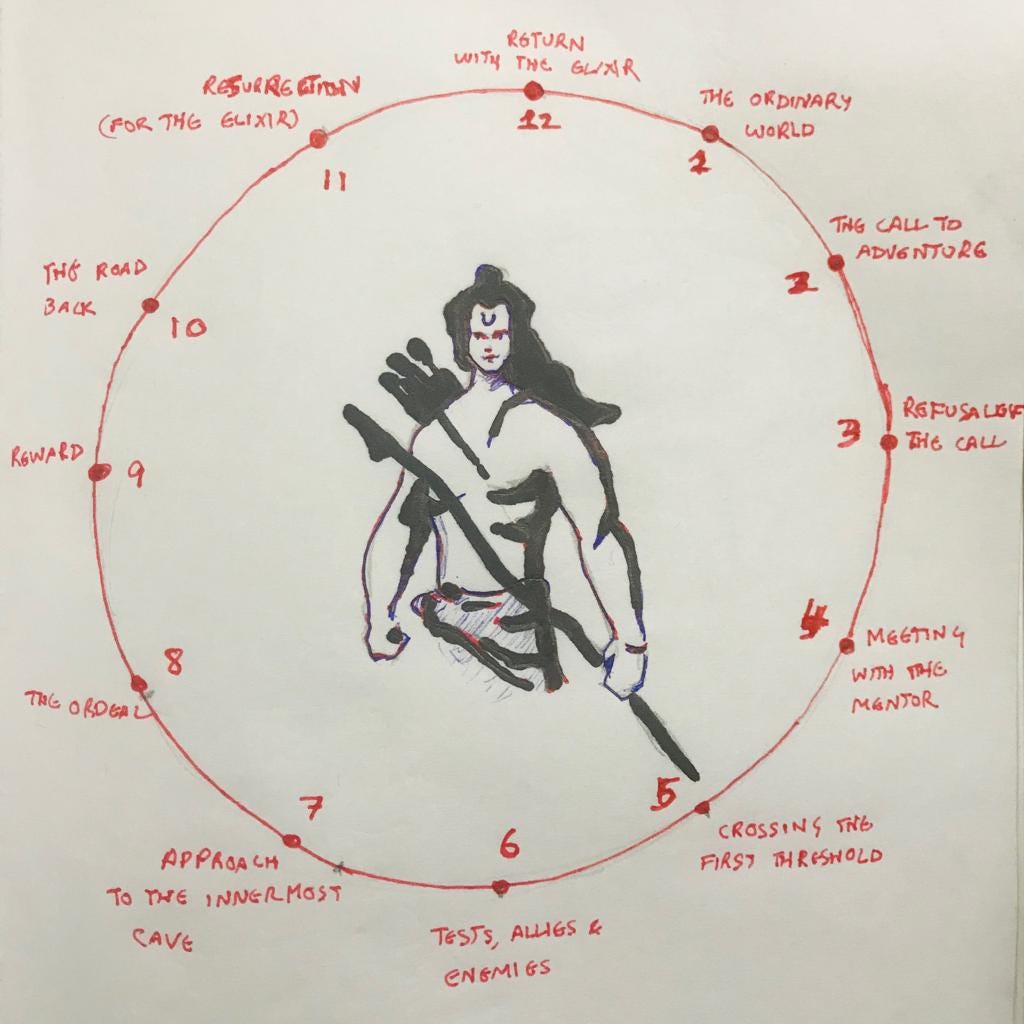 RETURN
WITH THE ELIXIR
12
THE ORDINARY
WORLD
1
THE CALL TO
ADVENTURE
2
REFUSAL OF
THE CALL
3
MEETING
WITH THE
MENTOR
4
CROSSING THE
FIRST THRESHOLD
5
TESTS, ALLIES &
ENEMIES
6
APPROACH
TO THE INNERMOST
CAVE
7
THE ORDEAL
8
REWARD
9
THE ROAD
BACK
10
RESURRECTION
(FOR THE ELIXIR)
11